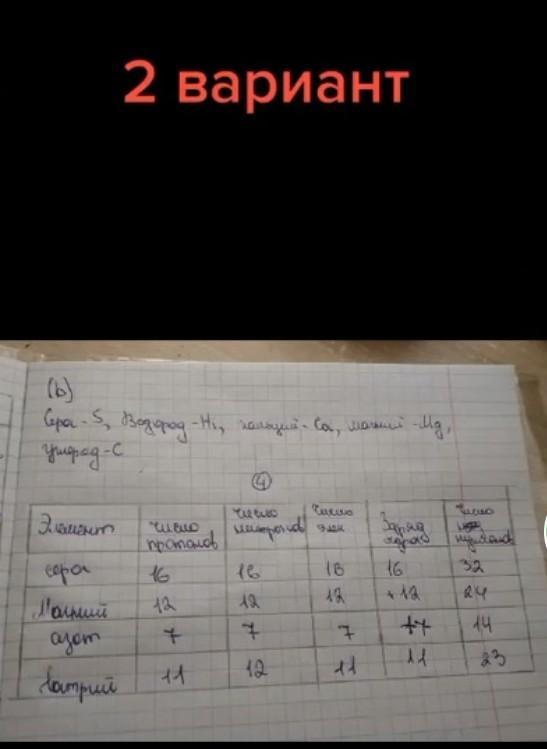 2 вариант
(b)
Сера - S, Водород - H, кальций - Ca, магний - Mg,
углерод - C
4
Элемент число протонов число нейтронов число элек Заряд ядра число нуклонов
сера 16 16 16 16 32
Магний 12 12 12 +12 24
азот 7 7 7 +7 14
Натрий 11 12 11 11 23